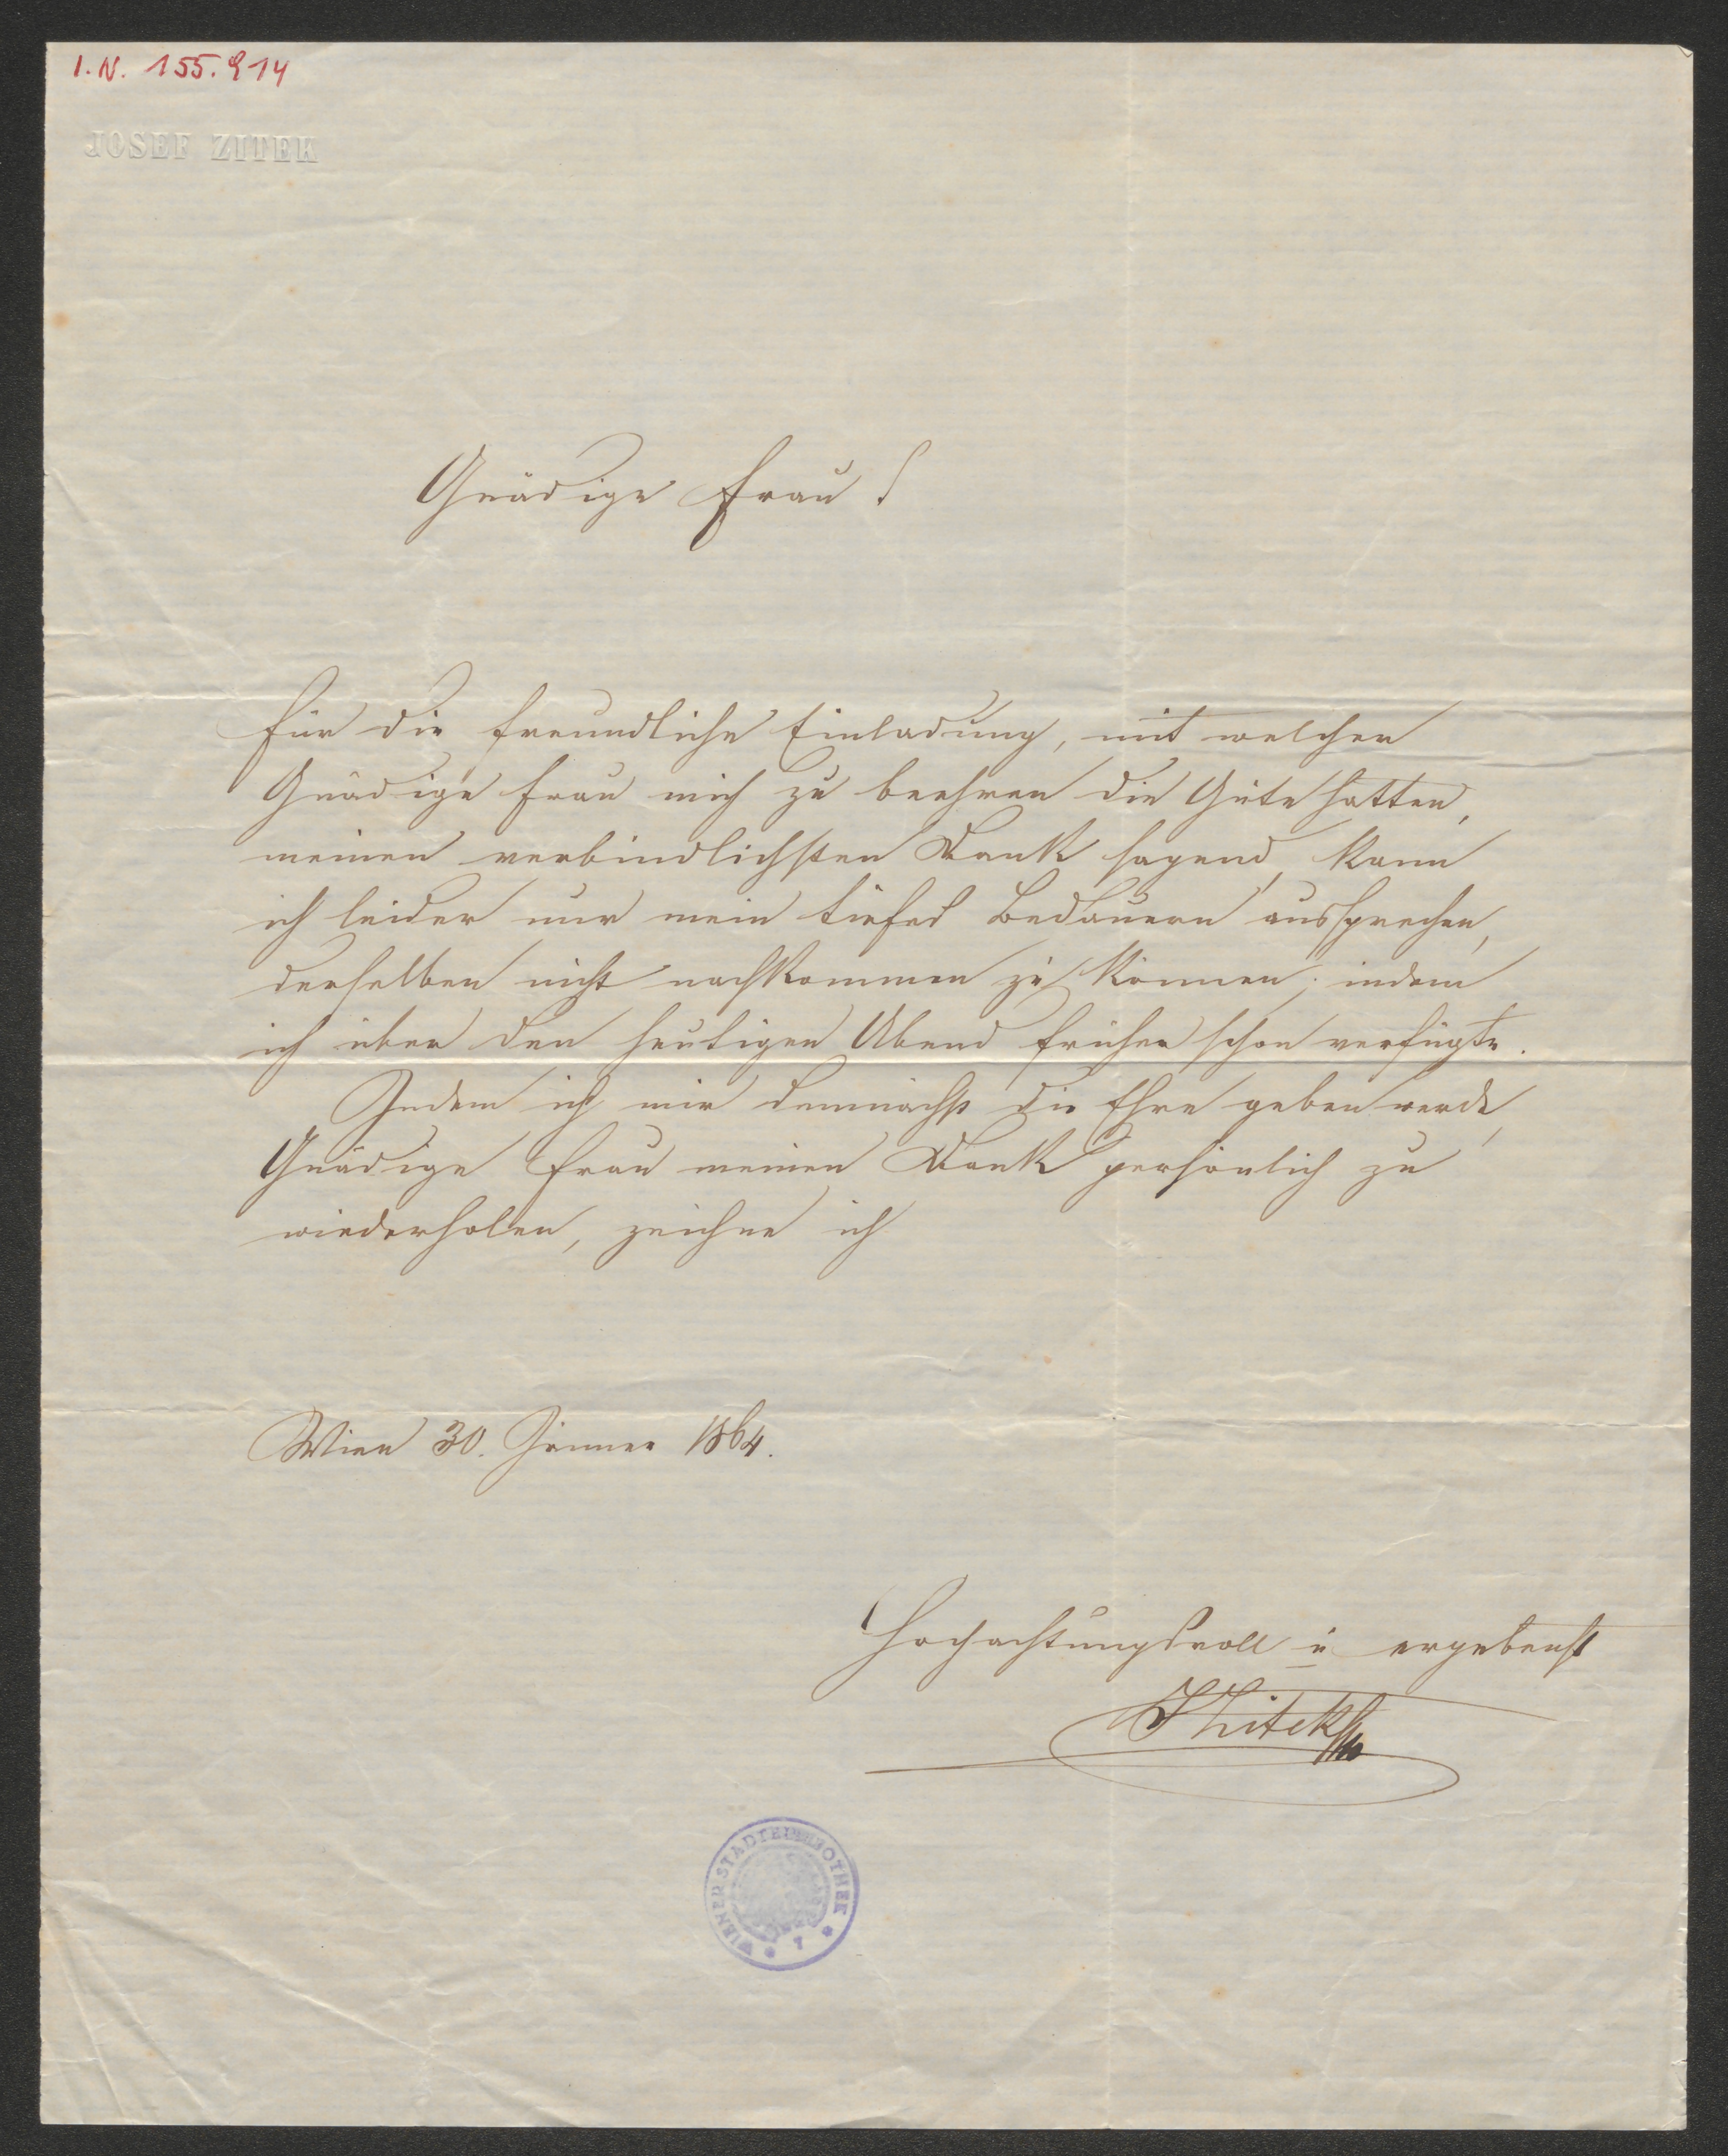 I.N. 155.914
JOSEF ZITEK
Gnädige Frau!
Für die freundliche Einladung, mit welcher
Gnädige Frau mich zu beehren die Güte hatten,
meinen verbindlichsten Dank sagend, kann
ich leider nur mein tiefes Bedauern aussprechen,
derselben nicht nachkommen zu können; indem
ich über den heutigen Abend früher schon verfügte.
Indem ich mir demnächst die Ehre geben werde,
Gnädige Frau meinen Dank persönlich zu
wiederholen, zeichne ich
Wien 30. Jänner 1864.
Hochachtungsvoll u ergebenst
JZitek
WIENER STADTBIBLIOTHEK